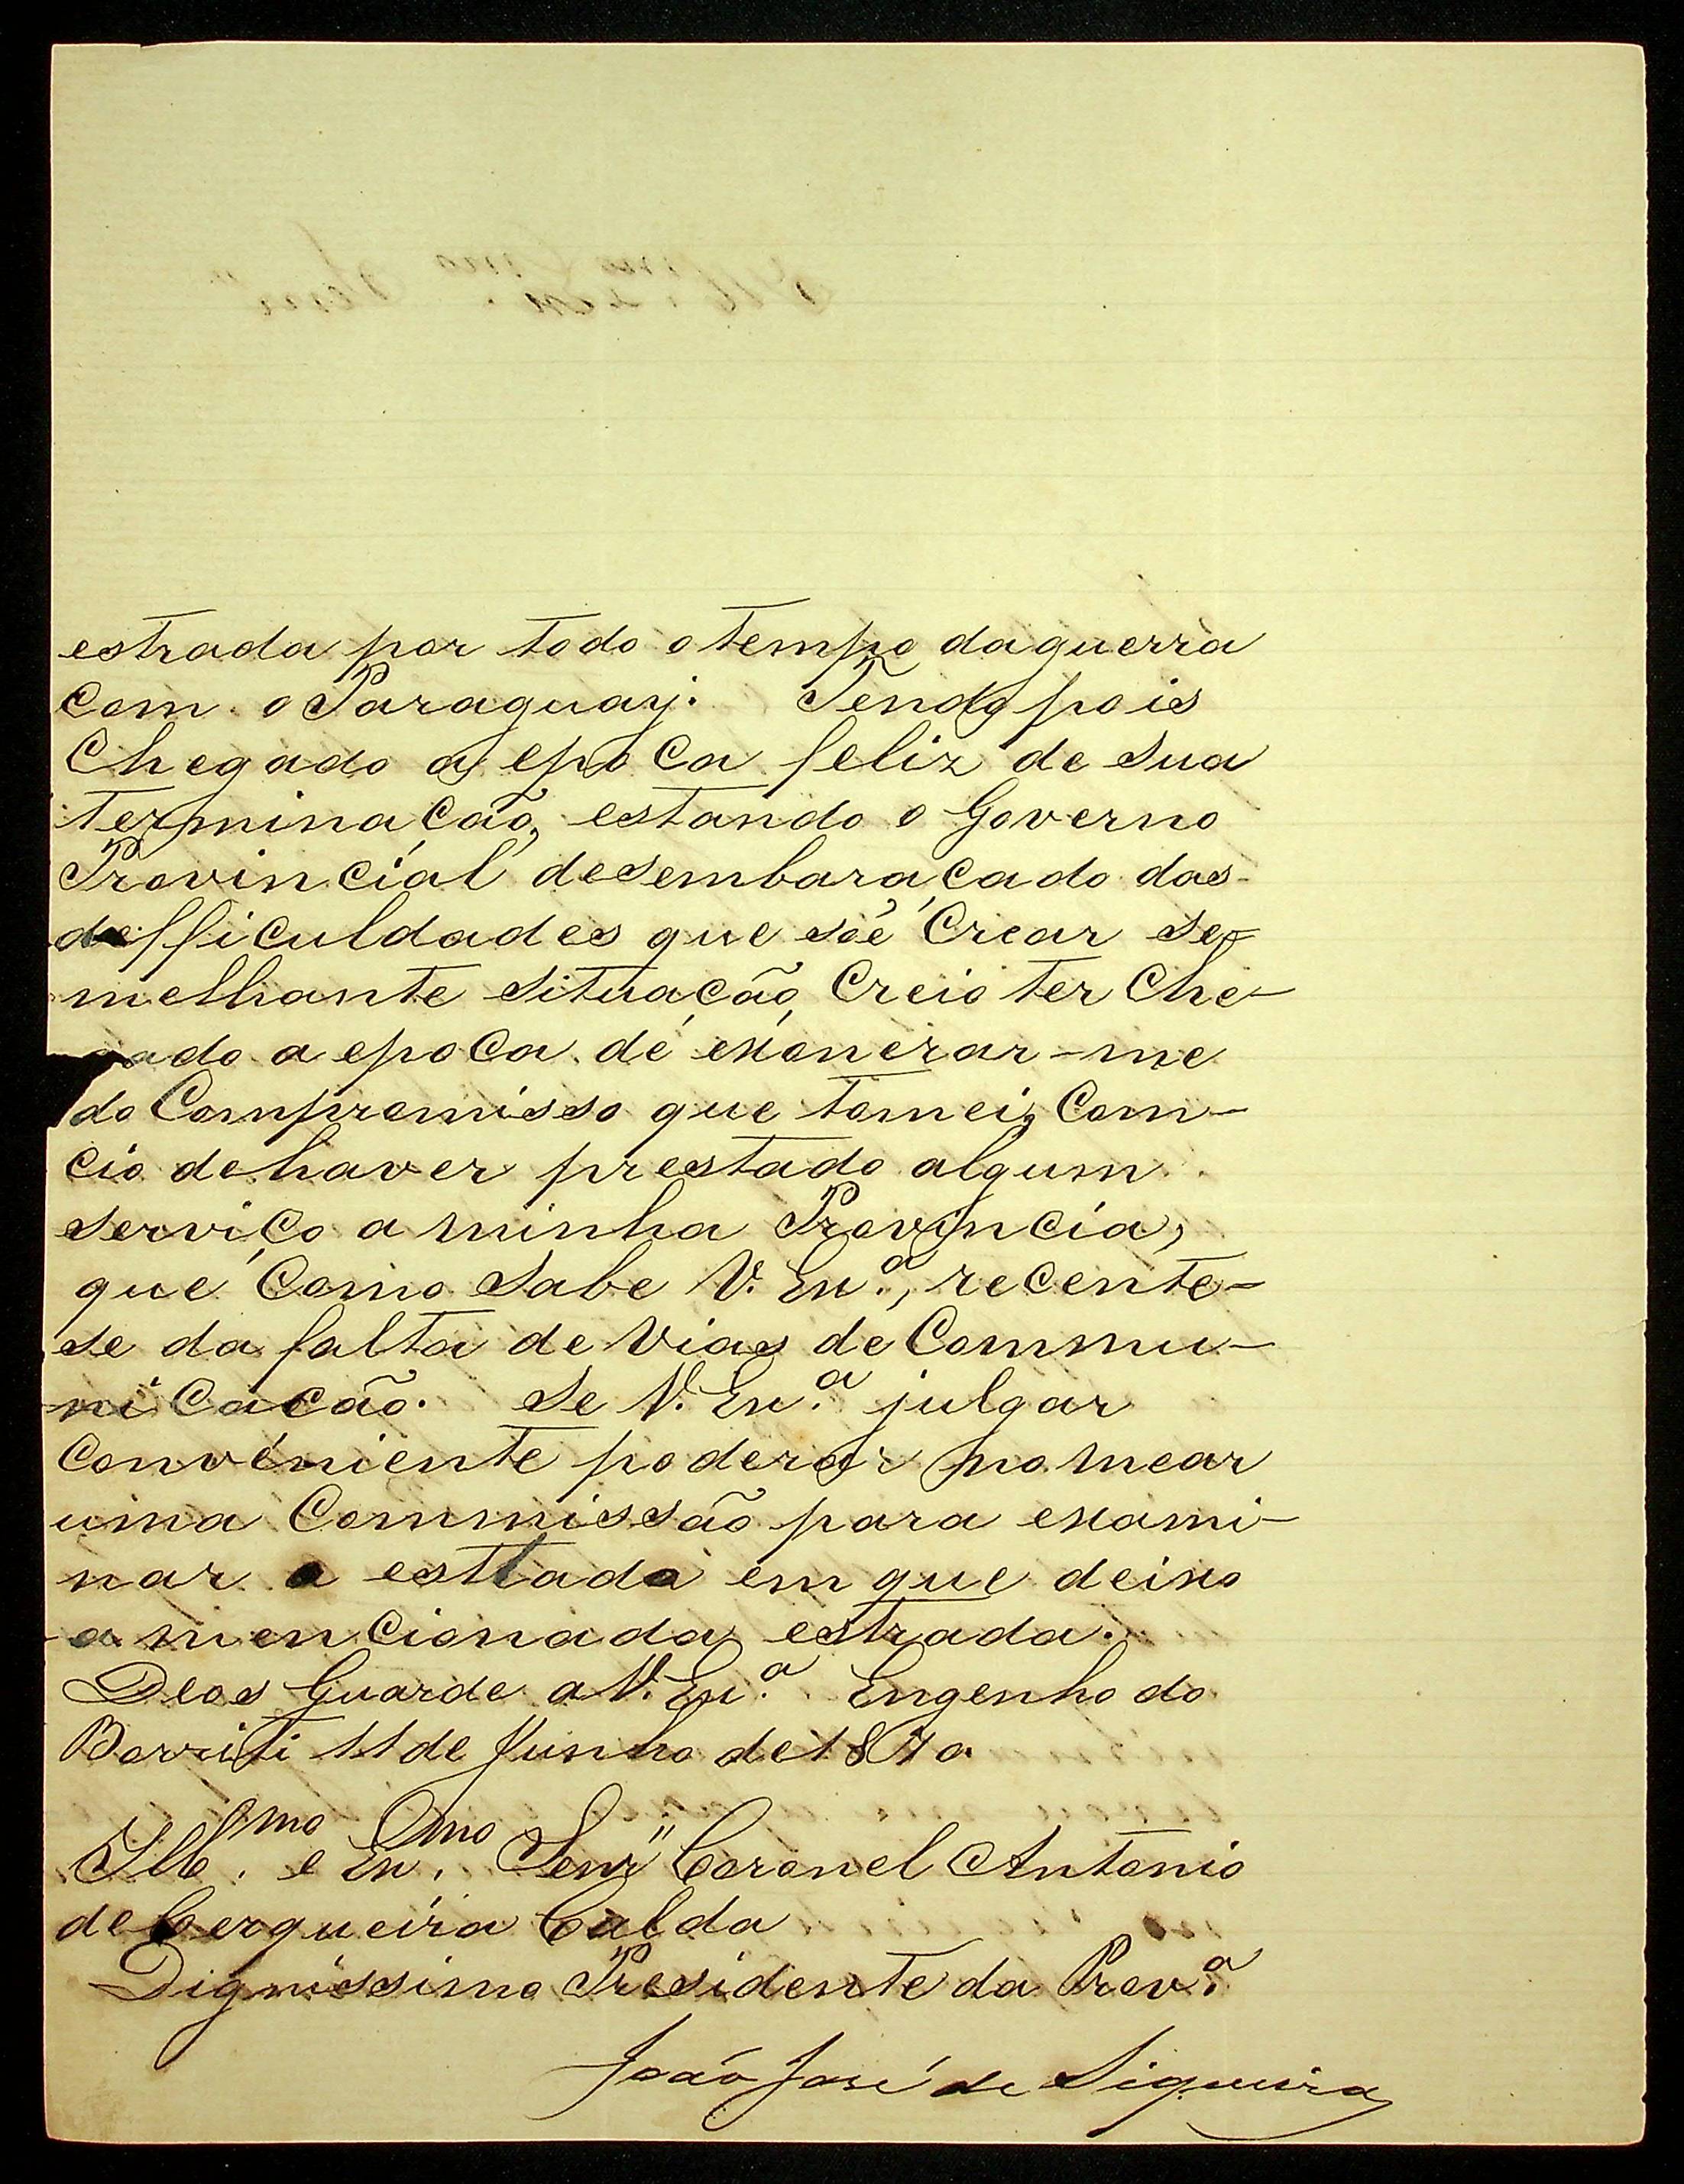 estrada por todo o tempo da guerra
com o Paraguay. Tendo pois
Chegado a epoca feliz de sua
terminação, estando o Governo
Provincial desembaraçado das
defficuldades que sóe Crear se-
melhante situação, Creio ter Che-
gado a epoca de exonerar-me
do Compromisso que tomei, Com-
cio de haver prestado algum
serviço a minha Provincia,
que Como sabe V. Exª., recente-
se da falta de vias de Commu-
nicação. Se V. Exª. julgar
Conveniente poderá nomear
uma Commissão para exami-
nar o estado em que deixo
a mencionada estrada.
Deos Guarde a V. Exª. Engenho do
Borriti 11 de Junho de 1870
Illmo. e Exmo. Senr" Coronel Antonio
de Cerqueira Calda
Dignissimo Presidente da Provª.
João José de Siqueira